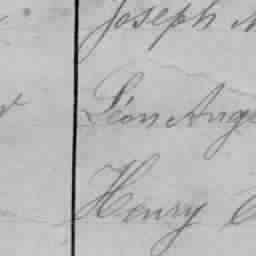 Joseph
Léon Ange
Henry